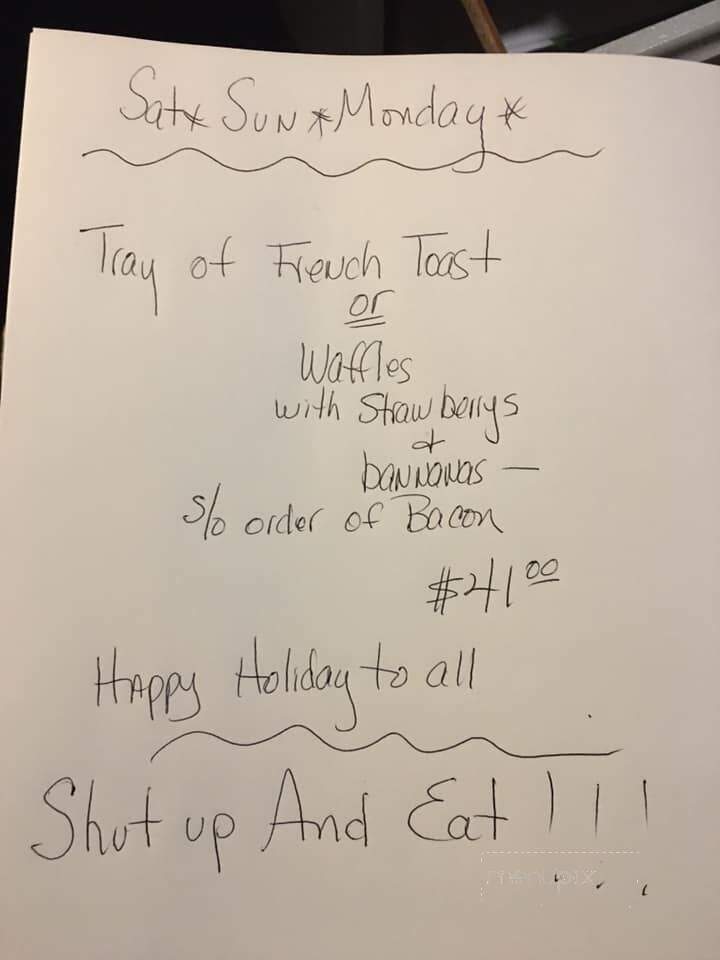 Sat* Sun *Monday *
Tray of French Toast
or
Waffles
with Strawberrys
+
bannanas —
s/o order of Bacon
$41 00
Happy Holiday to all
Shut up And Eat !!!
menupix